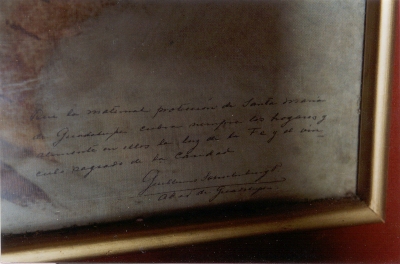 que la maternal protección de Santa María
de Guadalupe cubra siempre los hogares y
alimente en ellos la luz de la Fe y el vín-
culo sagrado de la Caridad
Guillermo
Abad de Guadalupe